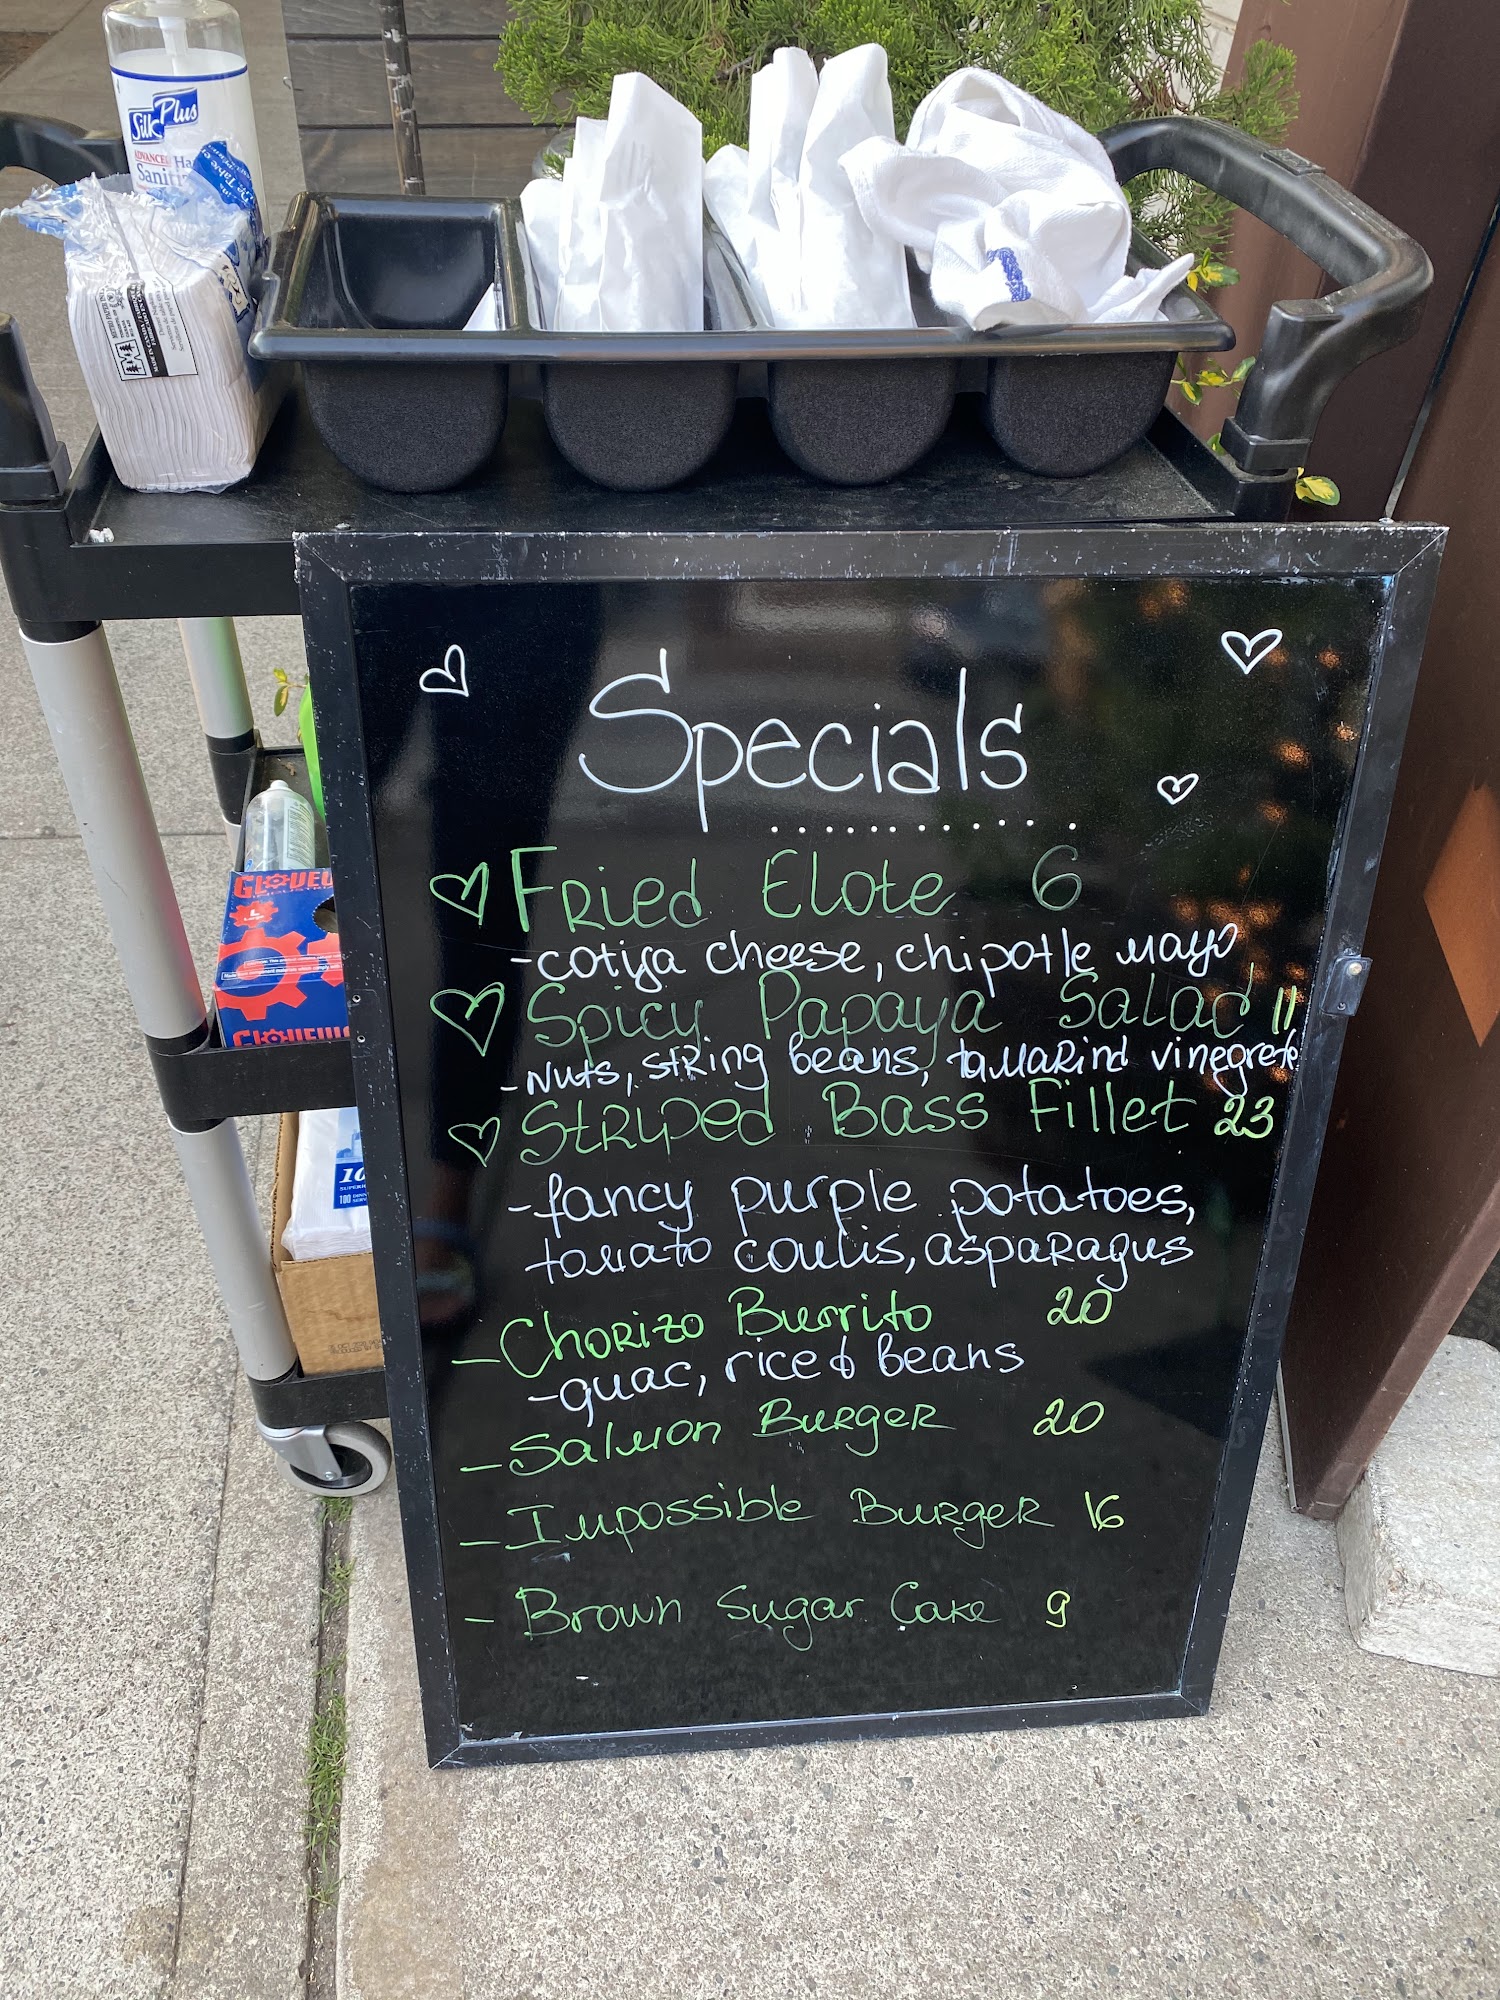 Silk Plus
ADVANCED Ha
Saniti
MADE IN CANADA
GLOVEW
L
GLOVEWO
10
100
Specials
Fried Elote 6
-cotija cheese, chipotle mayo
Spicy Papaya Salad 11
-Nuts, string beans, tamarind vinegrete
Striped Bass Fillet 23
-fancy purple potatoes,
tomato coulis, asparagus
-Chorizo Burrito 20
-guac, rice & beans
-Salmon Burger 20
-Impossible Burger 16
-Brown Sugar Cake 9